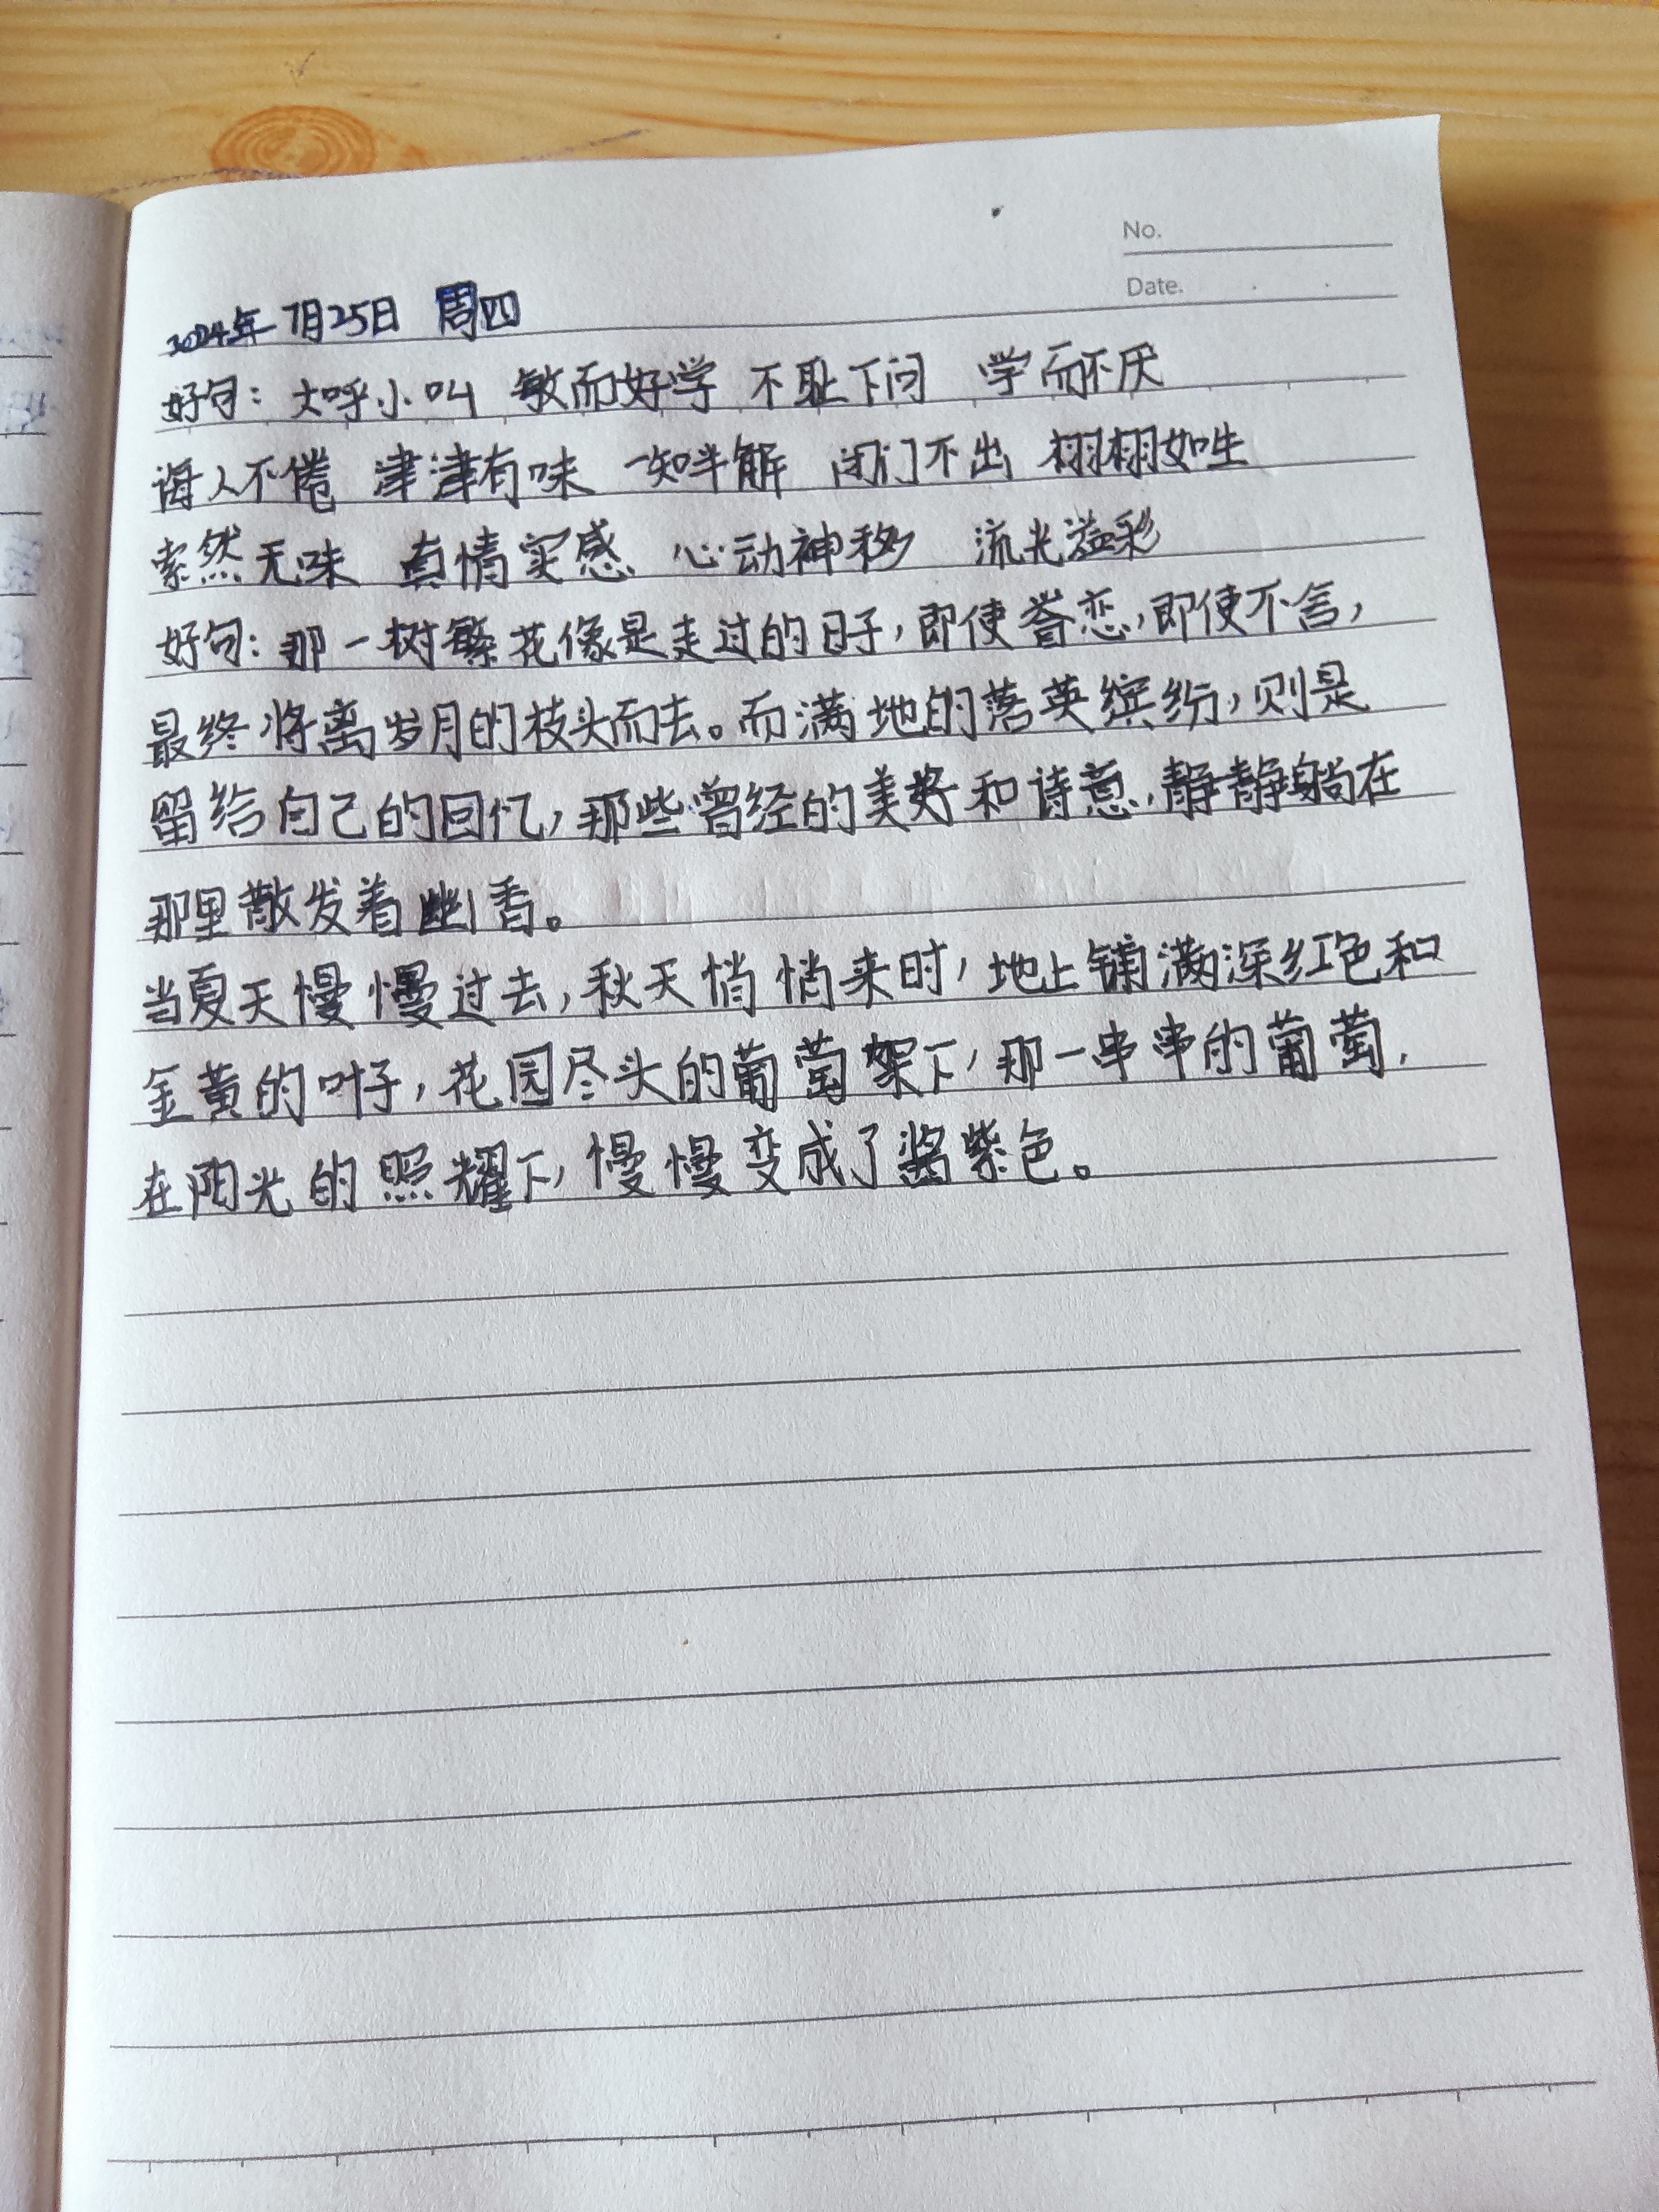 No.
Date.
2024年7月25日 周四
好句：大呼小叫 敏而好学 不耻下问 学而不厌
诲人不倦 津津有味 一知半解 闭门不出 栩栩如生
索然无味 真情实感 心动神移 流光溢彩
好句：那一树繁花像是走过的日子，即使眷恋，即使不舍，
最终将离岁月的枝头而去。而满地的落英缤纷，则是
留给自己的回忆，那些曾经的美好和诗意，静静躺在
那里散发着幽香。
当夏天慢慢过去，秋天悄悄来时，地上铺满深红色和
金黄的叶子，花园尽头的葡萄架下，那一串串的葡萄，
在阳光的照耀下，慢慢变成了酱紫色。